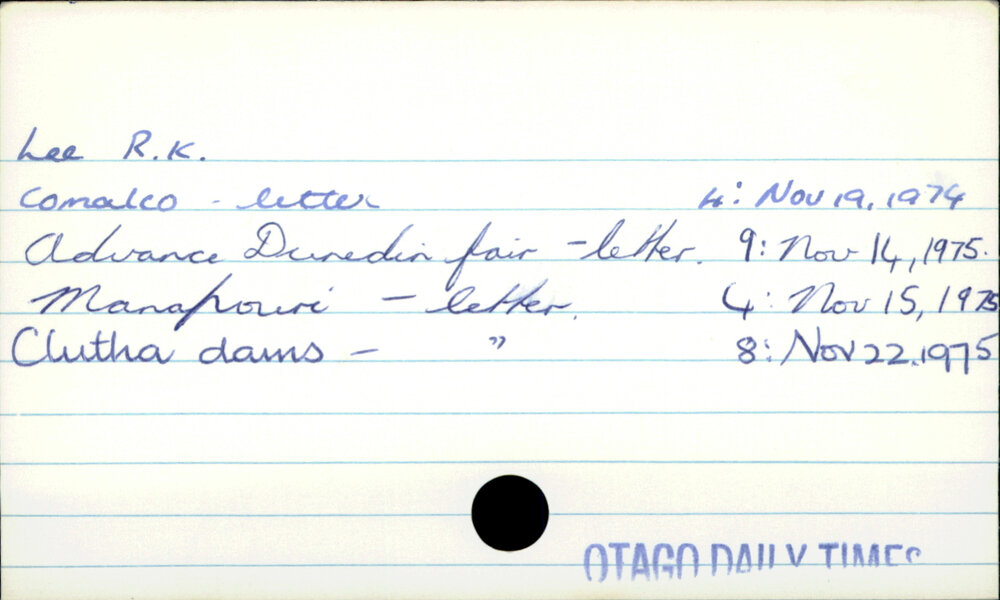 Lee R.K.
Comalco - letter 4: Nov 19, 1974
Advance Dunedin fair - letter. 9: Nov 14, 1975.
Manapouri - letter. 4: Nov 15, 1975
Clutha dams - " 8: Nov 22.1975
OTAGO DAILY TIMES